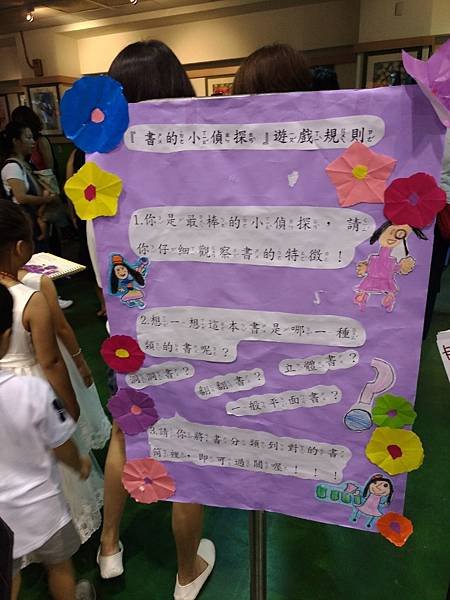 『書的小偵探』遊戲規則
1.你是最棒的小偵探，請
你仔細觀察書的特徵！
2.想一想這本書是哪一種
類的書呢？
立體書？
洞洞書？
翻翻書？
一般平面書？
3.請你將書分類到對的書
筒裡，即可過關喔！！！